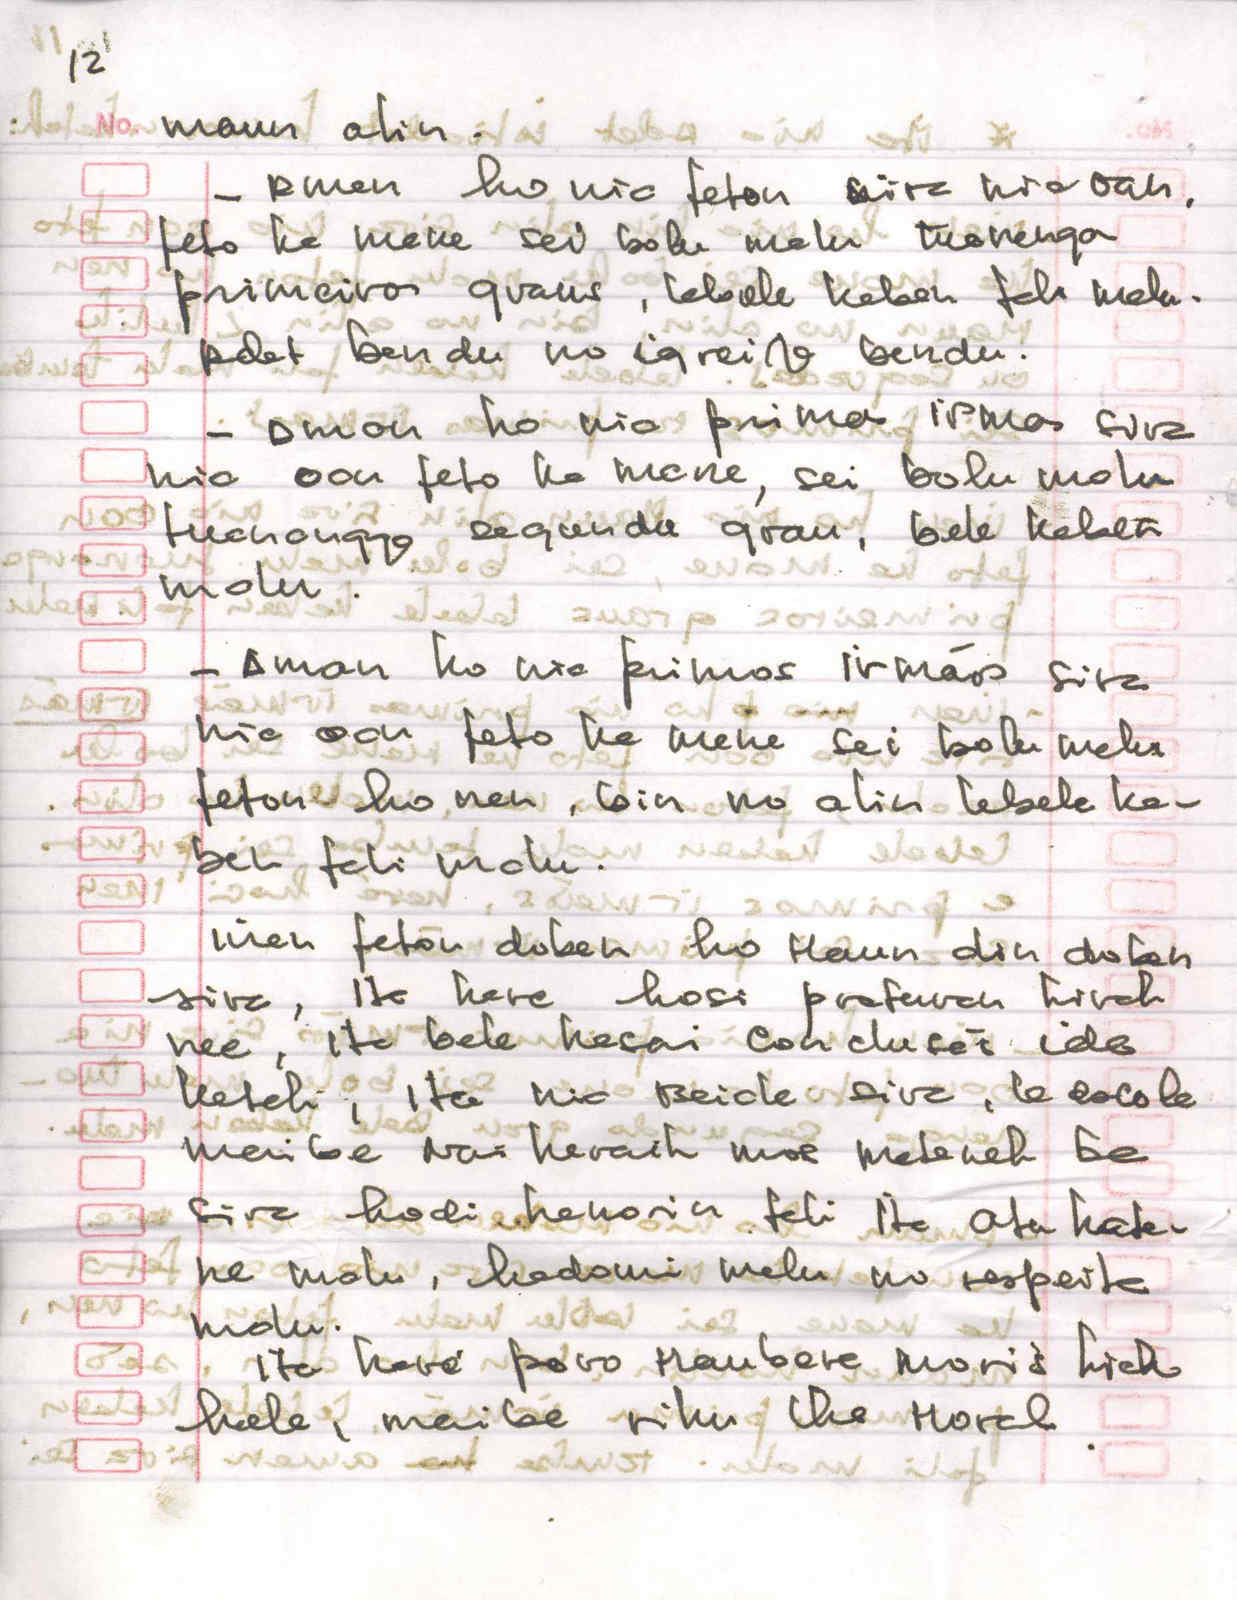 12
No. maun alin.
- Aman ho nia feton sira nia oan,
feto ka mane sei bolu malu tuananga
primeiros graus, labele kaben fali malu.
Adat bandu no igreija bandu.
- Aman ho nia primas irmas sira
nia oan feto ka mane, sei bolu malu
tuananga segundu grau, bele kaben
malu.
- Aman ho nia primos irmãos sira
nia oan feto ka mane sei bolu malu
feton ho nan, bin no alin labele ka-
ben fali malu.
inan feton doben ho maun alin doben
sira, ita hare hosi
nee, ita bele hasai conclusaì ida
katak, ita nia Beiala sira, la escola
maibe matenek ba
sira hodi hanorin fali ita atu hate-
ne malu, hadomi malu no respeita
malu.
Ita hare povo Maubere moris kiak
hela, maibe riku iha Moral.